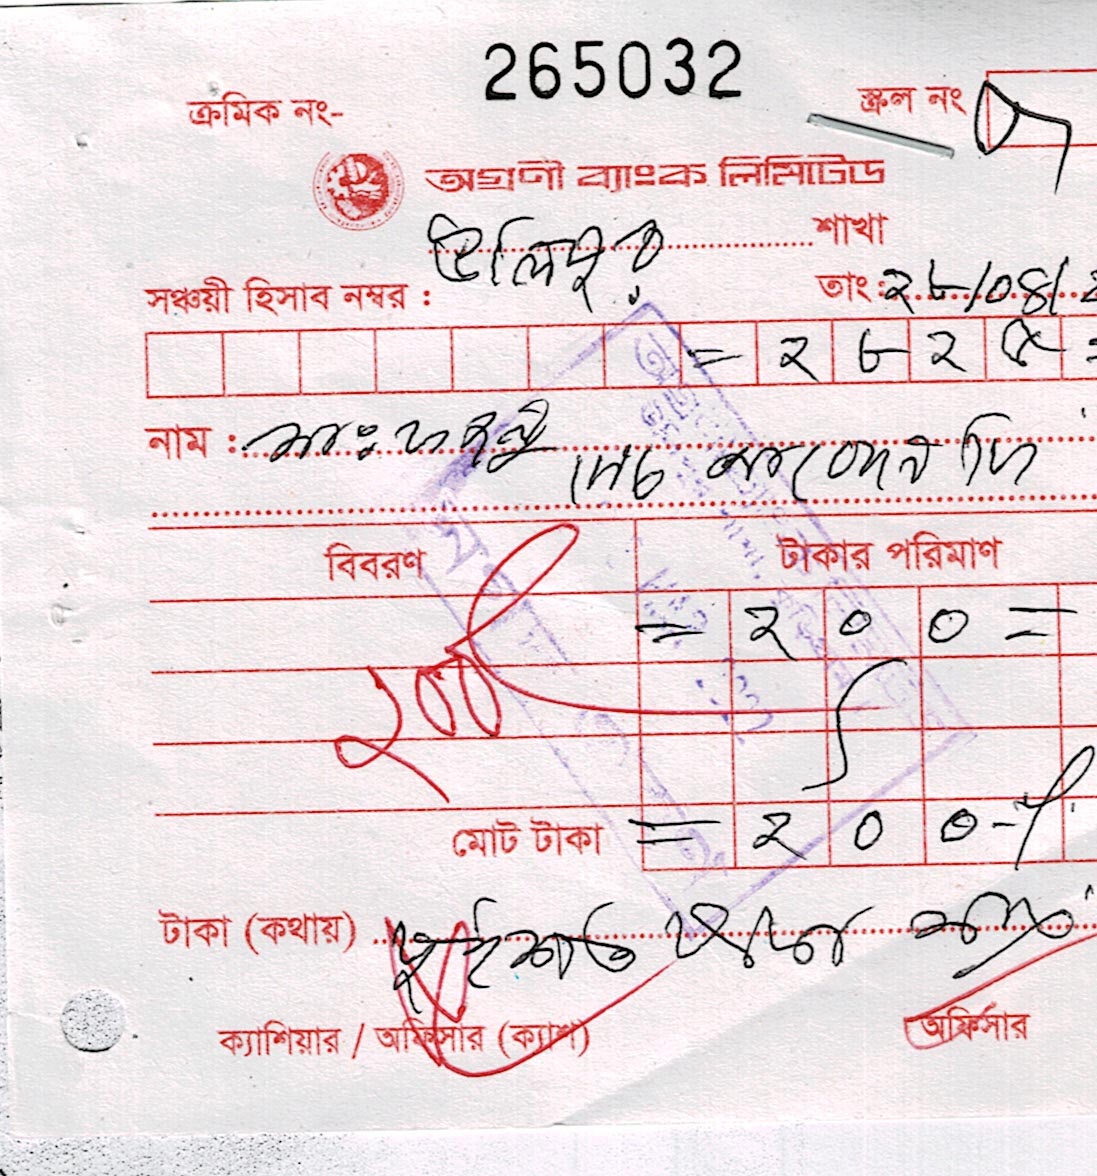 265032
ক্রমিক নং-
স্ক্রল নং
অগ্রণী ব্যাংক লিমিটেড
উলিপুর শাখা
সঞ্চয়ী হিসাব নম্বর :
তাং : ২৮/০৪/
= ২৮২৫ =
নাম :
বিবরণ টাকার পরিমাণ
= ২০০ =
২০০
মোট টাকা = ২০০
টাকা (কথায়) দুইশত টাকা মাত্র
ক্যাশিয়ার / অফিসার (ক্যাশ)
অফিসার